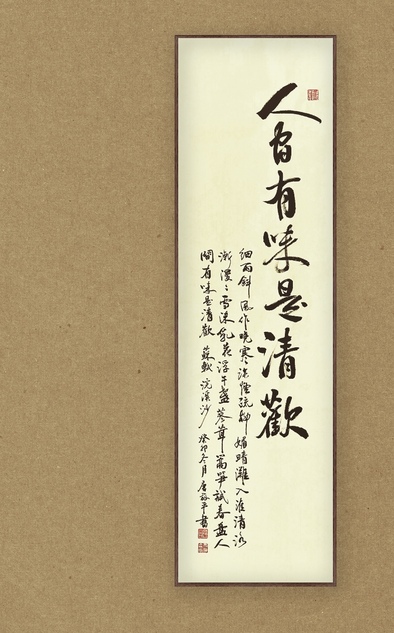 人間有味是清歡
細雨斜風作曉寒淡煙疏柳媚晴灘入淮清洛
漸漫〻雪沫乳花浮午盞蓼茸蒿筍試春盤人
間有味是清歡 蘇軾浣溪沙 癸卯冬月唐平書